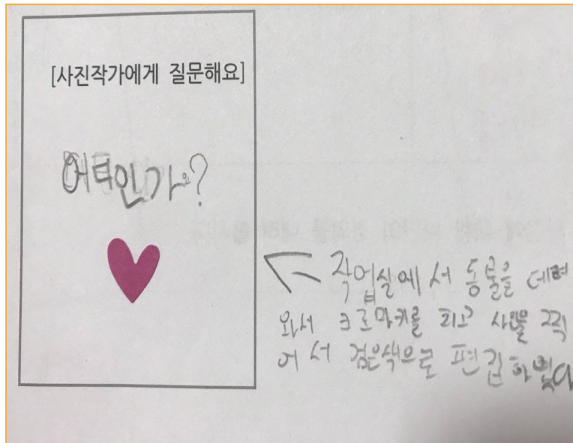 [사진작가에게 질문해요]
어디인가요?
작업실에서 동물을 데려
와서 크로마키를 피고 사진을 찍
어서 검은색으로 편집하였다